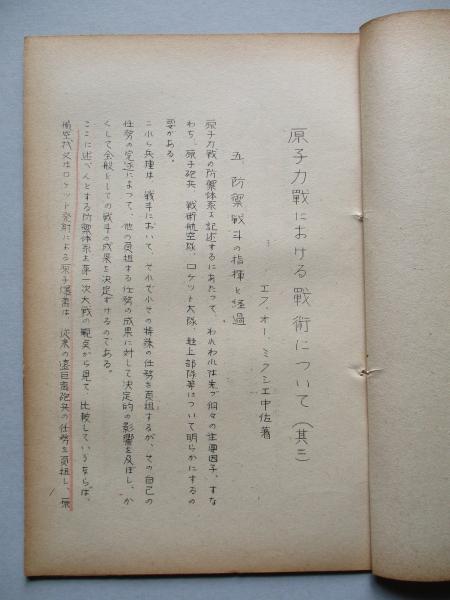 原子力戰における戰術について(其三)
エフ、オー、ミクシエ中佐著
五、防禦戰斗の指揮と経過
原子力戰の防禦体系を記述するにあたって、われわれは先づ個々の主要因子、すな
わち、原子砲兵、戰術航空隊、ロケット大隊、陸上部隊等について明らかにするの
要がある。
これら兵種は、戰斗において、それぞれその特殊の任務を負担するが、その自己の
任務の完遂によって、他の負担する任務の成果に対して決定的の影響を及ぼし、か
くして全般としての戰斗の成果を決定ずけるのである。
ここに述べんとする防禦体系を第一次大戰の観点から見て、比較していうならば、
航空機又はロケット発射による原子爆轟は、従来の遠距离砲兵の任務を負担し、原